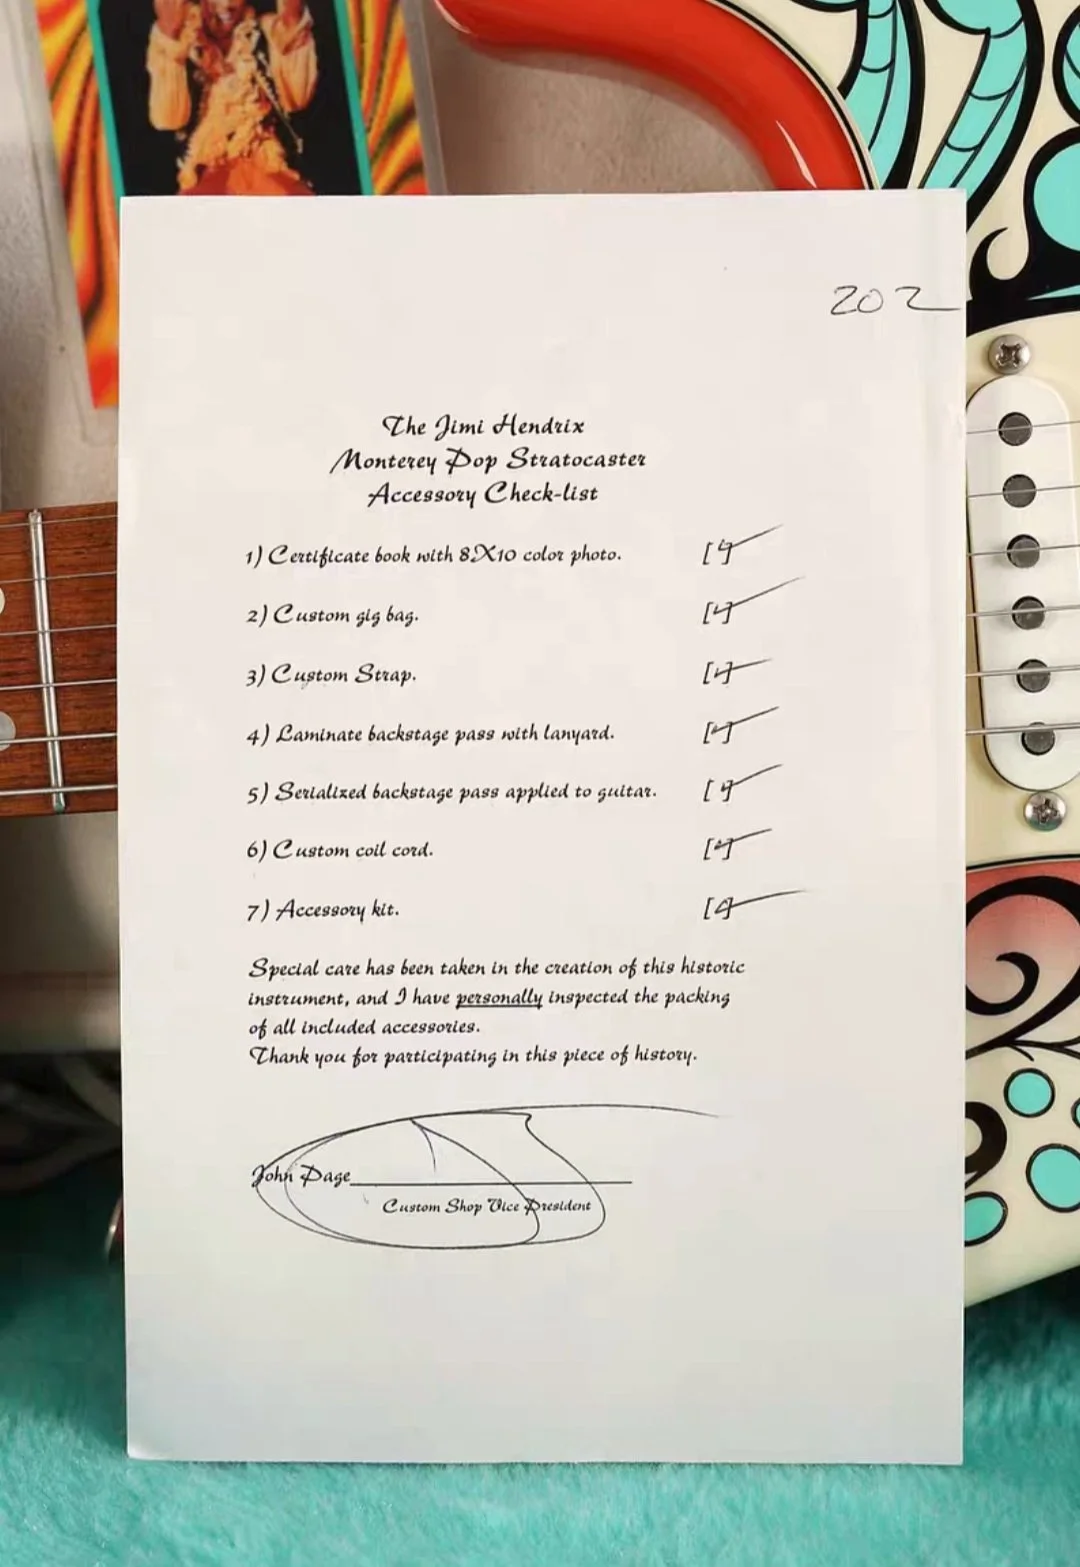 202
The Jimi Hendrix
Monterey Pop Stratocaster
Accessory Check-list
1) Certificate book with 8X10 color photo. [✓]
2) Custom gig bag. [✓]
3) Custom Strap. [✓]
4) Laminate backstage pass with lanyard. [✓]
5) Serialized backstage pass applied to guitar. [✓]
6) Custom coil cord. [✓]
7) Accessory kit. [✓]
Special care has been taken in the creation of this historic
instrument, and I have personally inspected the packing
of all included accessories.
Thank you for participating in this piece of history.
John Page
Custom Shop Vice President